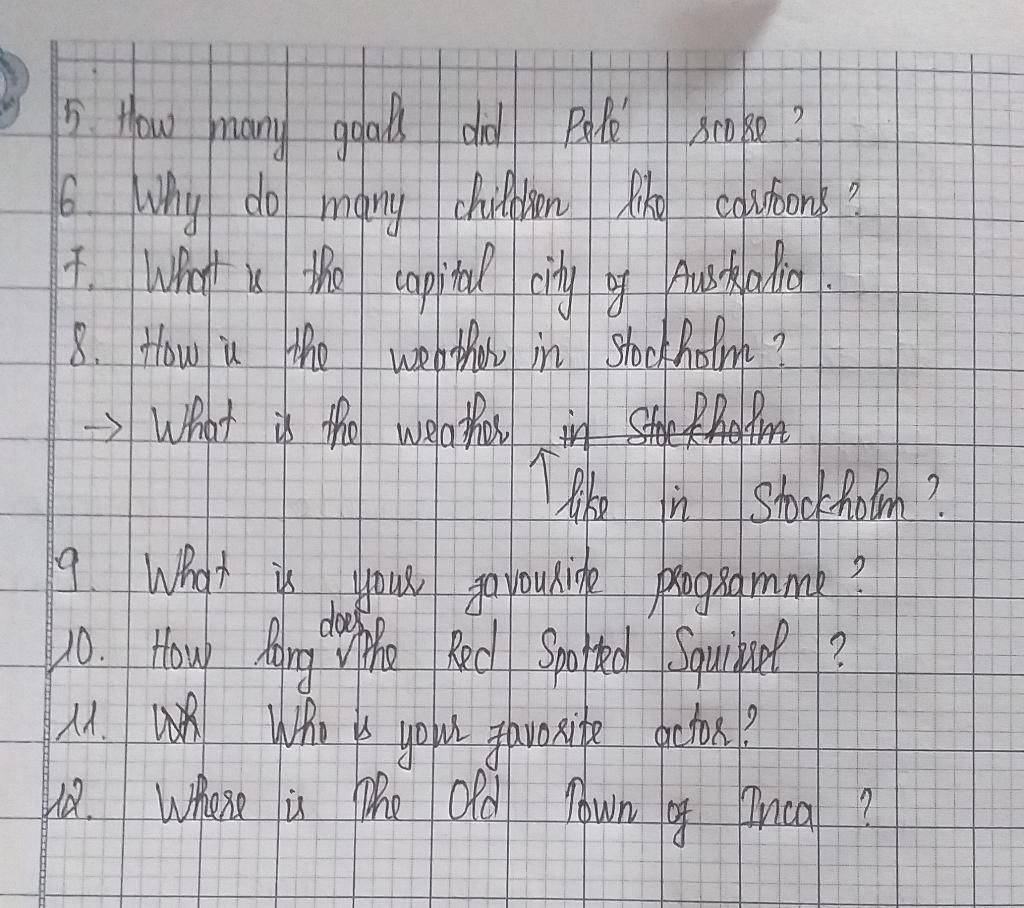 5. How many goals did Pelé score?
6. Why do many children like cartoons?
7. What is the capital city of Australia.
8. How is the weather in Stockholm?
→ What is the weather in Stockholm
↑ like in Stockholm?
9. What is your favourite programme?
does
10. How long √ the Red Spotted Squirrel?
11. Wh Who is your favorite actor?
12. Where is The Old Town of Inca?